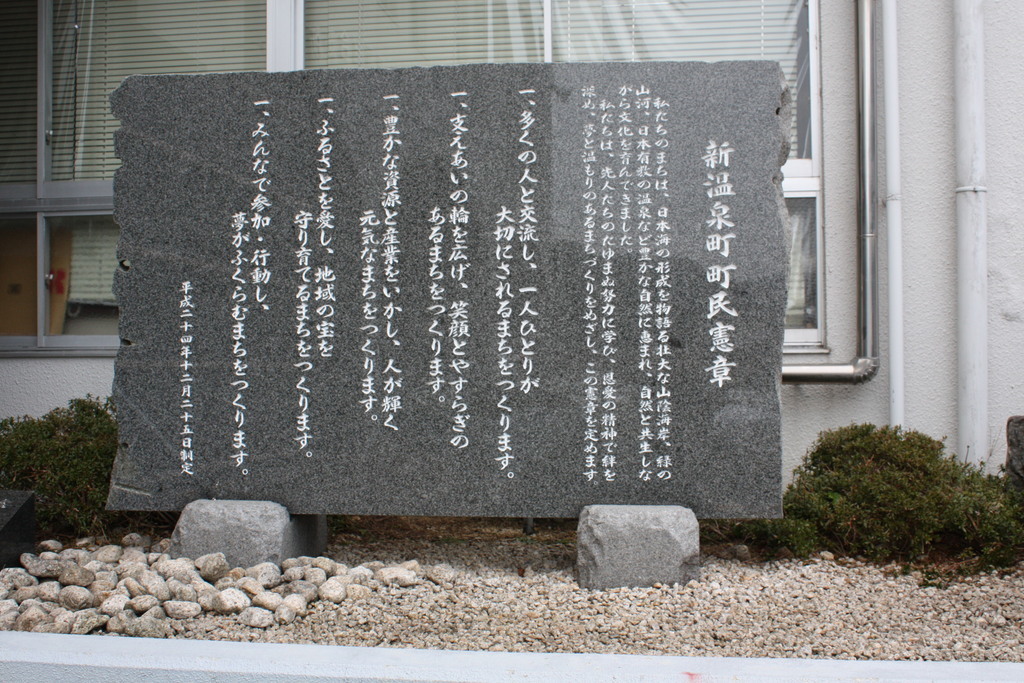 新温泉町町民憲章
私たちのまちは、日本海の形成を物語る壮大な山陰海岸、緑の
山河、日本有数の温泉など豊かな自然に恵まれ、自然と共生しな
がら文化を育んできました。
私たちは、先人たちのたゆまぬ努力に学び、恩愛の精神で絆を
深め、夢と温もりのあるまちづくりをめざし、この憲章を定めます
一、多くの人と交流し、一人ひとりが
大切にされるまちをつくります。
一、支えあいの輪を広げ、笑顔とやすらぎの
あるまちをつくります。
一、豊かな資源と産業をいかし、人が輝く
元気なまちをつくります。
一、ふるさとを愛し、地域の宝を
守り育てるまちをつくります。
一、みんなで参加・行動し、
夢がふくらむまちをつくります。
平成二十四年十二月二十五日制定